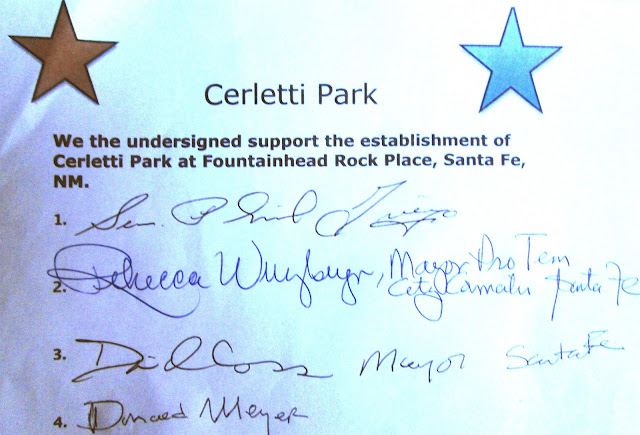 Cerletti Park
We the undersigned support the establishment of
Cerletti Park at Fountainhead Rock Place, Santa Fe,
NM.
1. Sen. Phil Griego
2. Rebecca Wurzburger, Mayor Pro Tem
City Santa Fe
3. David Coss Mayor Santa Fe
4. Donald Meyer